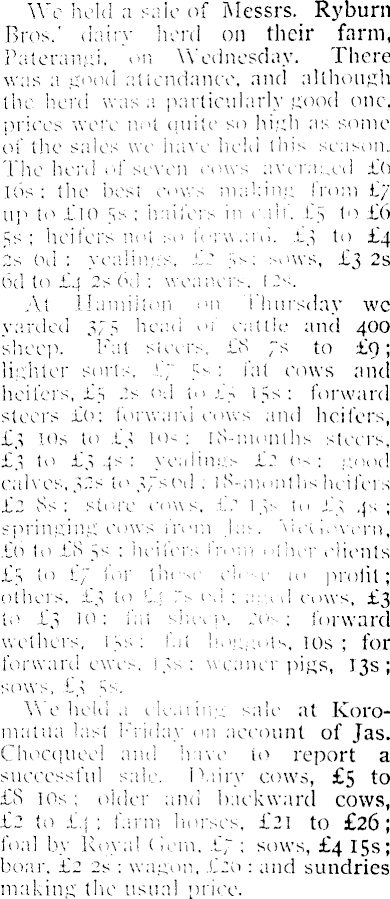 We held a sale of Messrs. Ryburn
Bros.' dairy herd on their farm,
Paterangi, on Wednesday. There
was a good attendance, and although
the herd was a particularly good one,
prices were not quite so high as some
of the sales we have held this season.
The herd of seven cows averaged £6
16s; the best cows making from £7
up to £10 5s; haifers in calf, £5 to £6
5s; heifers not so forward, £3 to £4
2s 6d; yealings, £2 5s; sows, £3 2s
6d to £4 2s 6d; weaners, 12s.
At Hamilton on Thursday we
yarded 375 head of cattle and 400
sheep. Fat steers, £8 7s to £9;
lighter sorts, £7 5s; fat cows and
heifers, £5 2s 6d to £5 15s; forward
steers £6; forward cows and heifers,
£3 10s to £3 10s; 18-months steers,
£3 to £3 4s; yealings £2 6s; good
calves, 32s to 37s6d; 18-months heifers
£2 8s; store cows, £2 13s to £3 4s;
springing cows from Jas. McGovern,
£6 to £8 5s; heifers from other clients
£5 to £7 for these close to profit;
others, £3 to £4 7s 6d; aged cows, £3
to £3 10; fat sheep, 20s; forward
wethers, 15s; fat hoggots, 10s; for
forward ewes, 13s; weaner pigs, 13s;
sows, £3 5s.
We held a clearing sale at Koro-
matua last Friday on account of Jas.
Chocqueel and have to report a
successful sale. Dairy cows, £5 to
£8 10s; older and backward cows,
£2 to £4; farm horses, £21 to £26;
foal by Royal Gem, £7; sows, £4 15s;
boar, £2 2s; wagon, £20; and sundries
making the usual price.